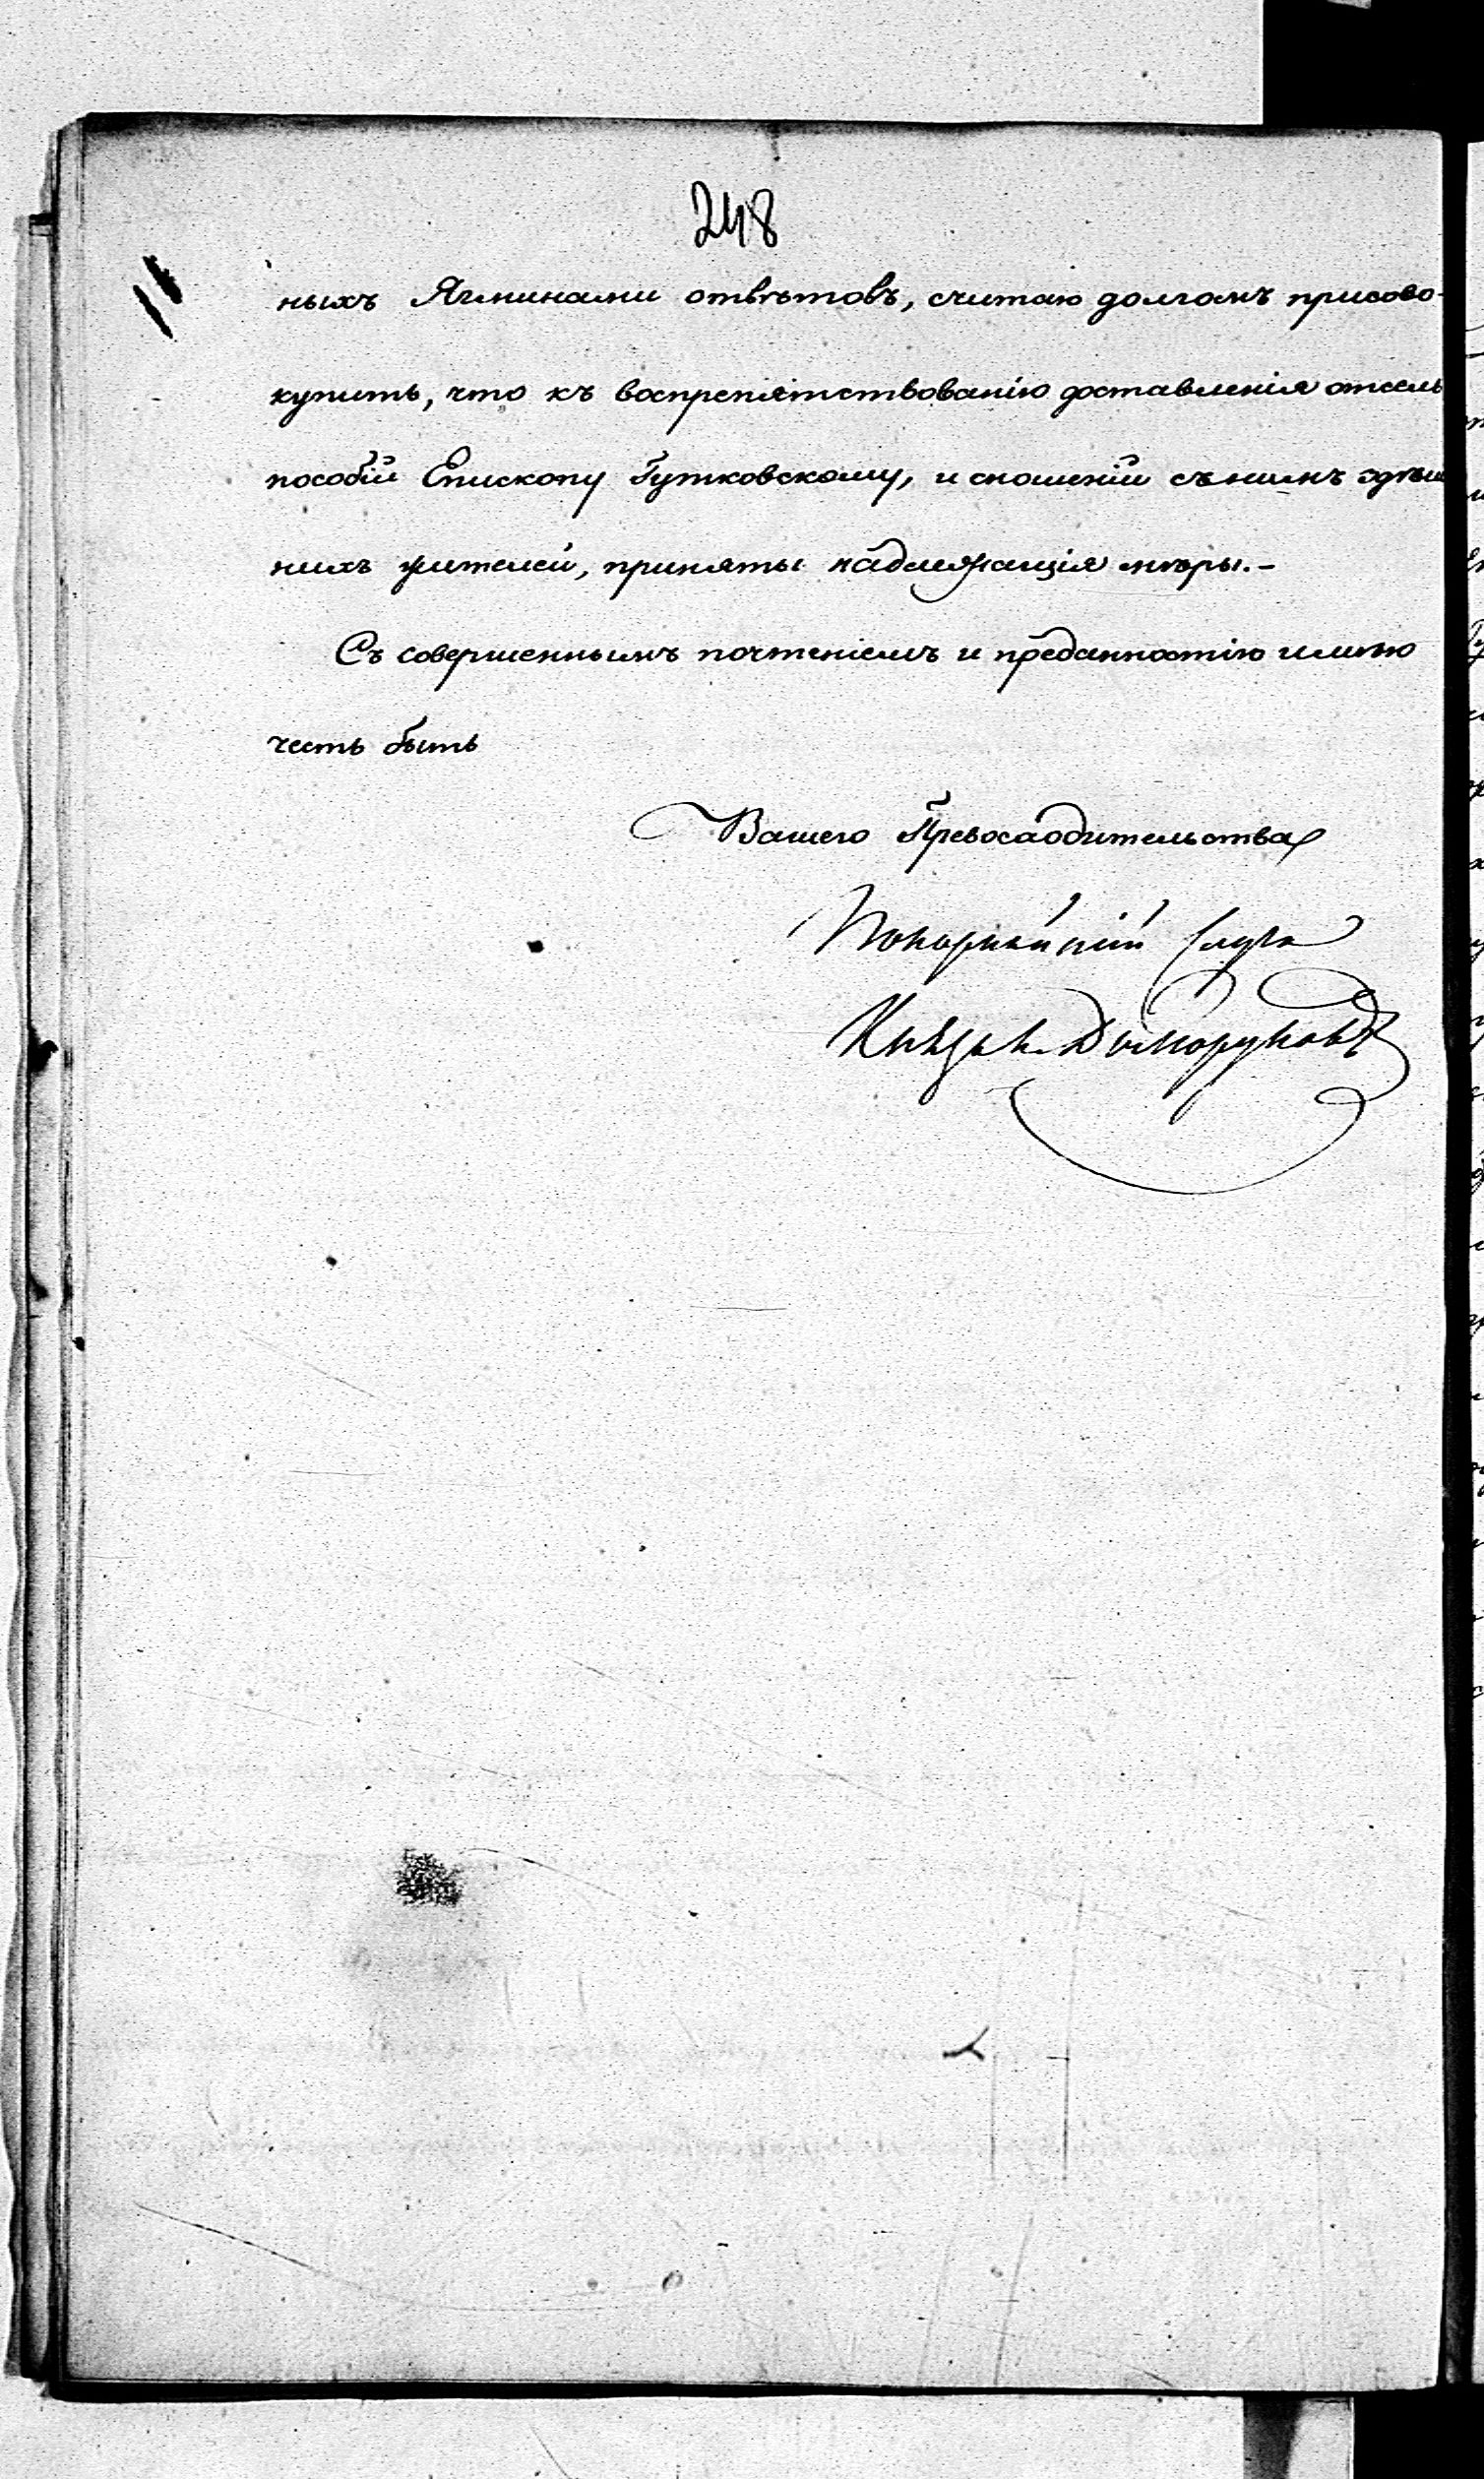 248
ныхъ Ягминами отвѣтовъ, считаю долгомъ присово-
купить, что къ воспрепятствованію доставленія отсель
пособій Епископу Гутковскому, и сношеній съ нимъ здѣш
нихъ жителей, приняты надлежащія мѣры.-
Съ совершеннымъ почтеніемъ и преданностію имѣю
честь быть
Вашего Превосходительства
Покорнѣйшій слуга
Князь Долгоруковъ